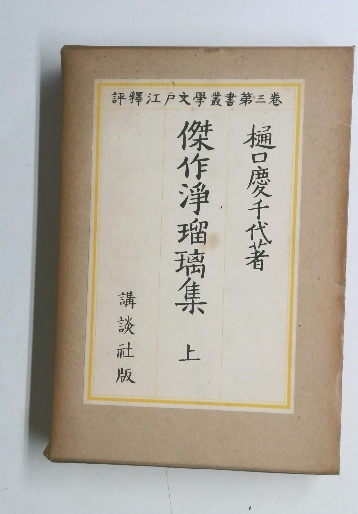 評釋江戸文學叢書第三巻
樋口慶千代著
傑作淨瑠璃集 上
講談社版